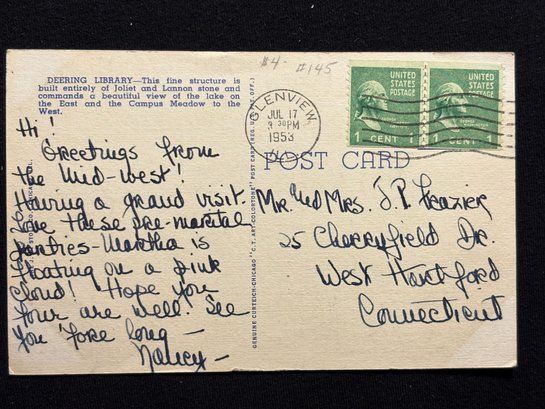 #4- #145
DEERING LIBRARY—This fine structure is
built entirely of Joliet and Lannon stone and
commands a beautiful view of the lake on
the East and the Campus Meadow to the
West.
Hi!
Greetings from
the Mid-West!
Having a grand visit.
Love these pre-marital
parties-Martha is
floating on a pink
cloud! Hope you
four are well. See
you 'fore long —
Nancy —
GENUINE CURTEICH-CHICAGO "C.T. ART-COLORTONE" POST CARD (REG. U.S. PAT. OFF.)
GLENVIEW
JUL 17
3 30PM
1953
ILL.
UNITED
STATES
POSTAGE
1 CENT 1
UNITED
STATES
POSTAGE
1 CENT 1
POST CARD
Mr. and Mrs. J.P. Frazier
25 Cherryfield Dr.
West Hartford
Connecticut